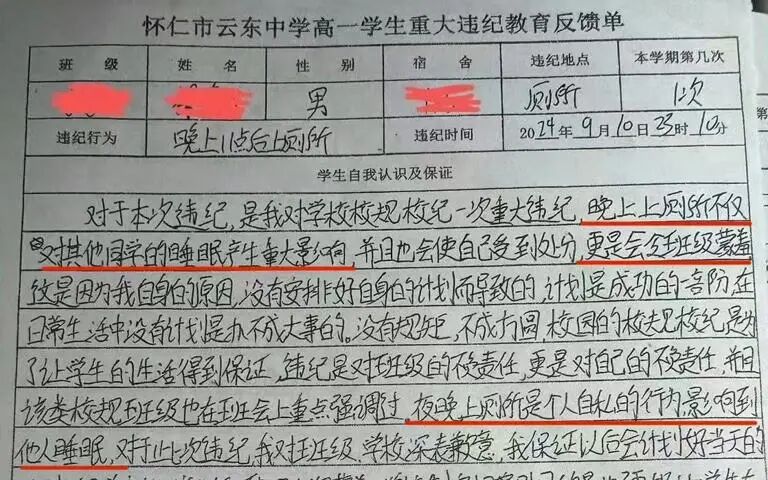 怀仁市云东中学高一学生重大违纪教育反馈单
班 级 姓 名 性 别 宿 舍 违纪地点 本学期第几次
男 厕所 1次
违纪行为 晚上11点后上厕所 违纪时间 2024年9月10日23时10分
第
学生自我认识及保证
对于本次违纪,是我对学校校规校纪一次重大违纪,晚上上厕所不仅
对其他同学的睡眠产生重大影响,并且也会使自己受到处分,更是会给班级蒙羞
这是因为我自身的原因,没有安排好自身的计划而导致的,计划是成功的一部阶,在
日常生活中没有计划是办不成大事的。没有规矩,不成方圆,校园的校规校纪是为
了让学生的生活得到保证,违纪是对班级的不负责任,更是对自己的不负责任,并且
该类校规班级也在班会上重点强调过,夜晚上厕所是个人自私的行为,影响到
他人睡眠,对于此次违纪,我对班级、学校深表歉意,我保证以后会计划好当天的